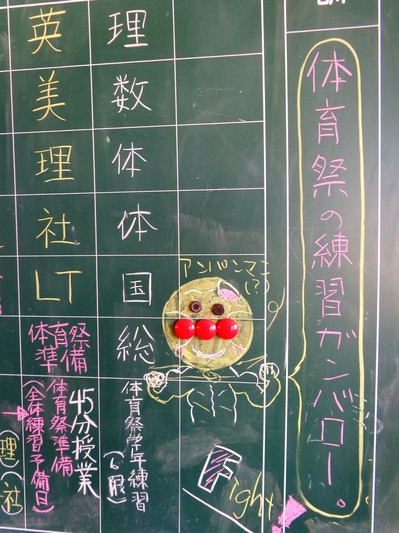 体育祭の練習ガンバロー。
理
数
体
体
国
総
体育祭学年練習
(6限)
45分授業
英
美
理
社
LT
体育祭
準備
体育祭準備
(全体練習予備日)
(理)(社)
アンパンマン
(?)
Fight